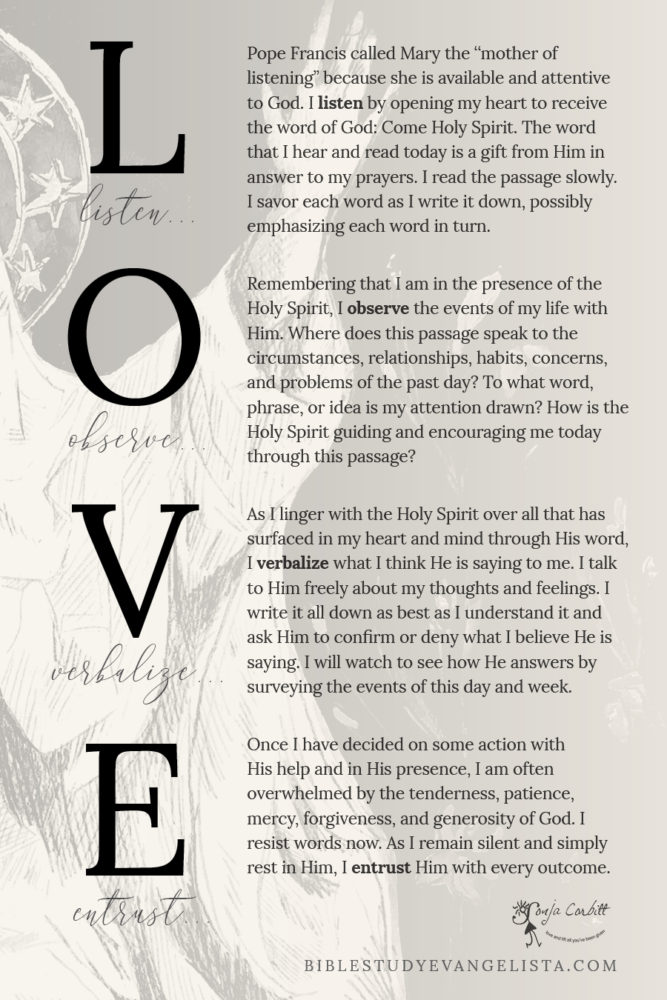 L
listen...
Pope Francis called Mary the “mother of
listening” because she is available and attentive
to God. I listen by opening my heart to receive
the word of God: Come Holy Spirit. The word
that I hear and read today is a gift from Him in
answer to my prayers. I read the passage slowly.
I savor each word as I write it down, possibly
emphasizing each word in turn.
O
observe...
Remembering that I am in the presence of the
Holy Spirit, I observe the events of my life with
Him. Where does this passage speak to the
circumstances, relationships, habits, concerns,
and problems of the past day? To what word,
phrase, or idea is my attention drawn? How is the
Holy Spirit guiding and encouraging me today
through this passage?
V
verbalize...
As I linger with the Holy Spirit over all that has
surfaced in my heart and mind through His word,
I verbalize what I think He is saying to me. I talk
to Him freely about my thoughts and feelings. I
write it all down as best as I understand it and
ask Him to confirm or deny what I believe He is
saying. I will watch to see how He answers by
surveying the events of this day and week.
E
entrust...
Once I have decided on some action with
His help and in His presence, I am often
overwhelmed by the tenderness, patience,
mercy, forgiveness, and generosity of God. I
resist words now. As I remain silent and simply
rest in Him, I entrust Him with every outcome.
Sonja Corbitt
love and lift all you've been given
BIBLESTUDYEVANGELISTA.COM